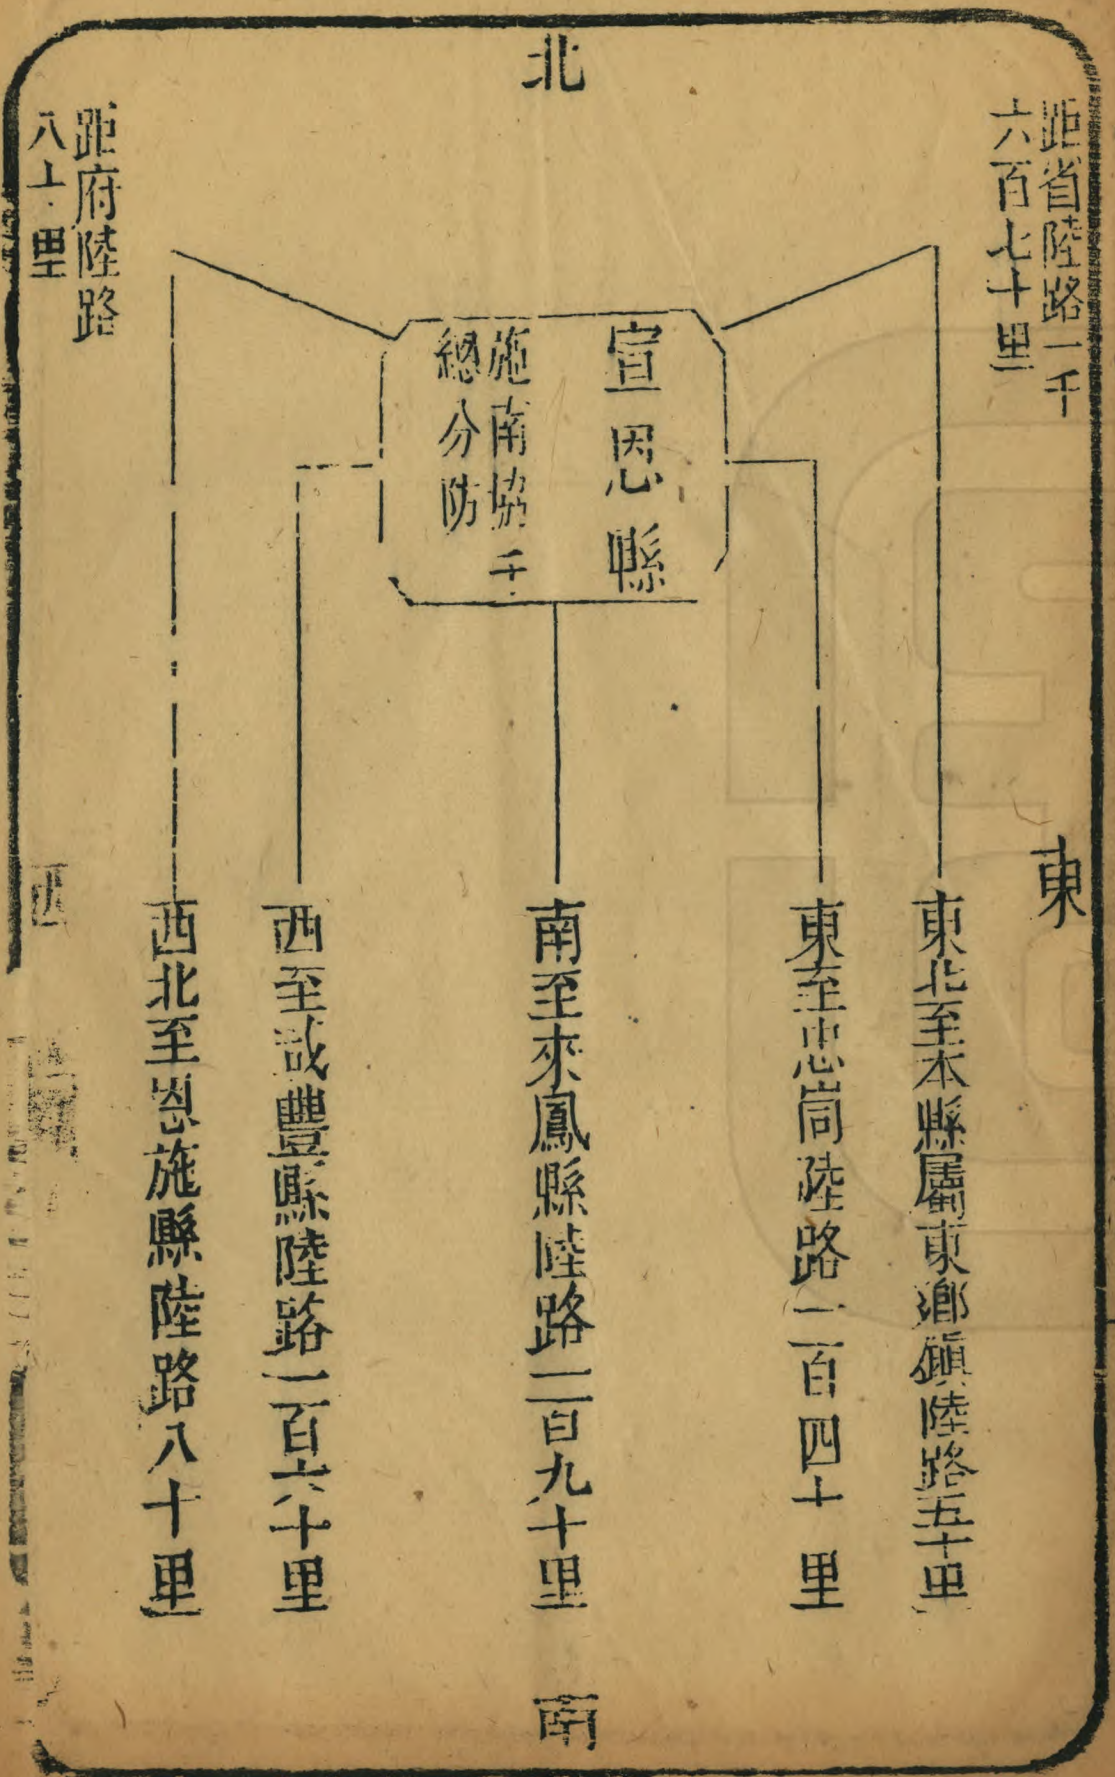 北
距省陸路一千
六百七十里
東
宣恩縣
施南協千
總分防
距府陸路
八十里
西
東北至本縣屬東鄉鎮陸路五十里
東至忠峝陸路一百四十里
南至來鳳縣陸路二百九十里
西至咸豐縣陸路一百六十里
西北至恩施縣陸路八十里
南